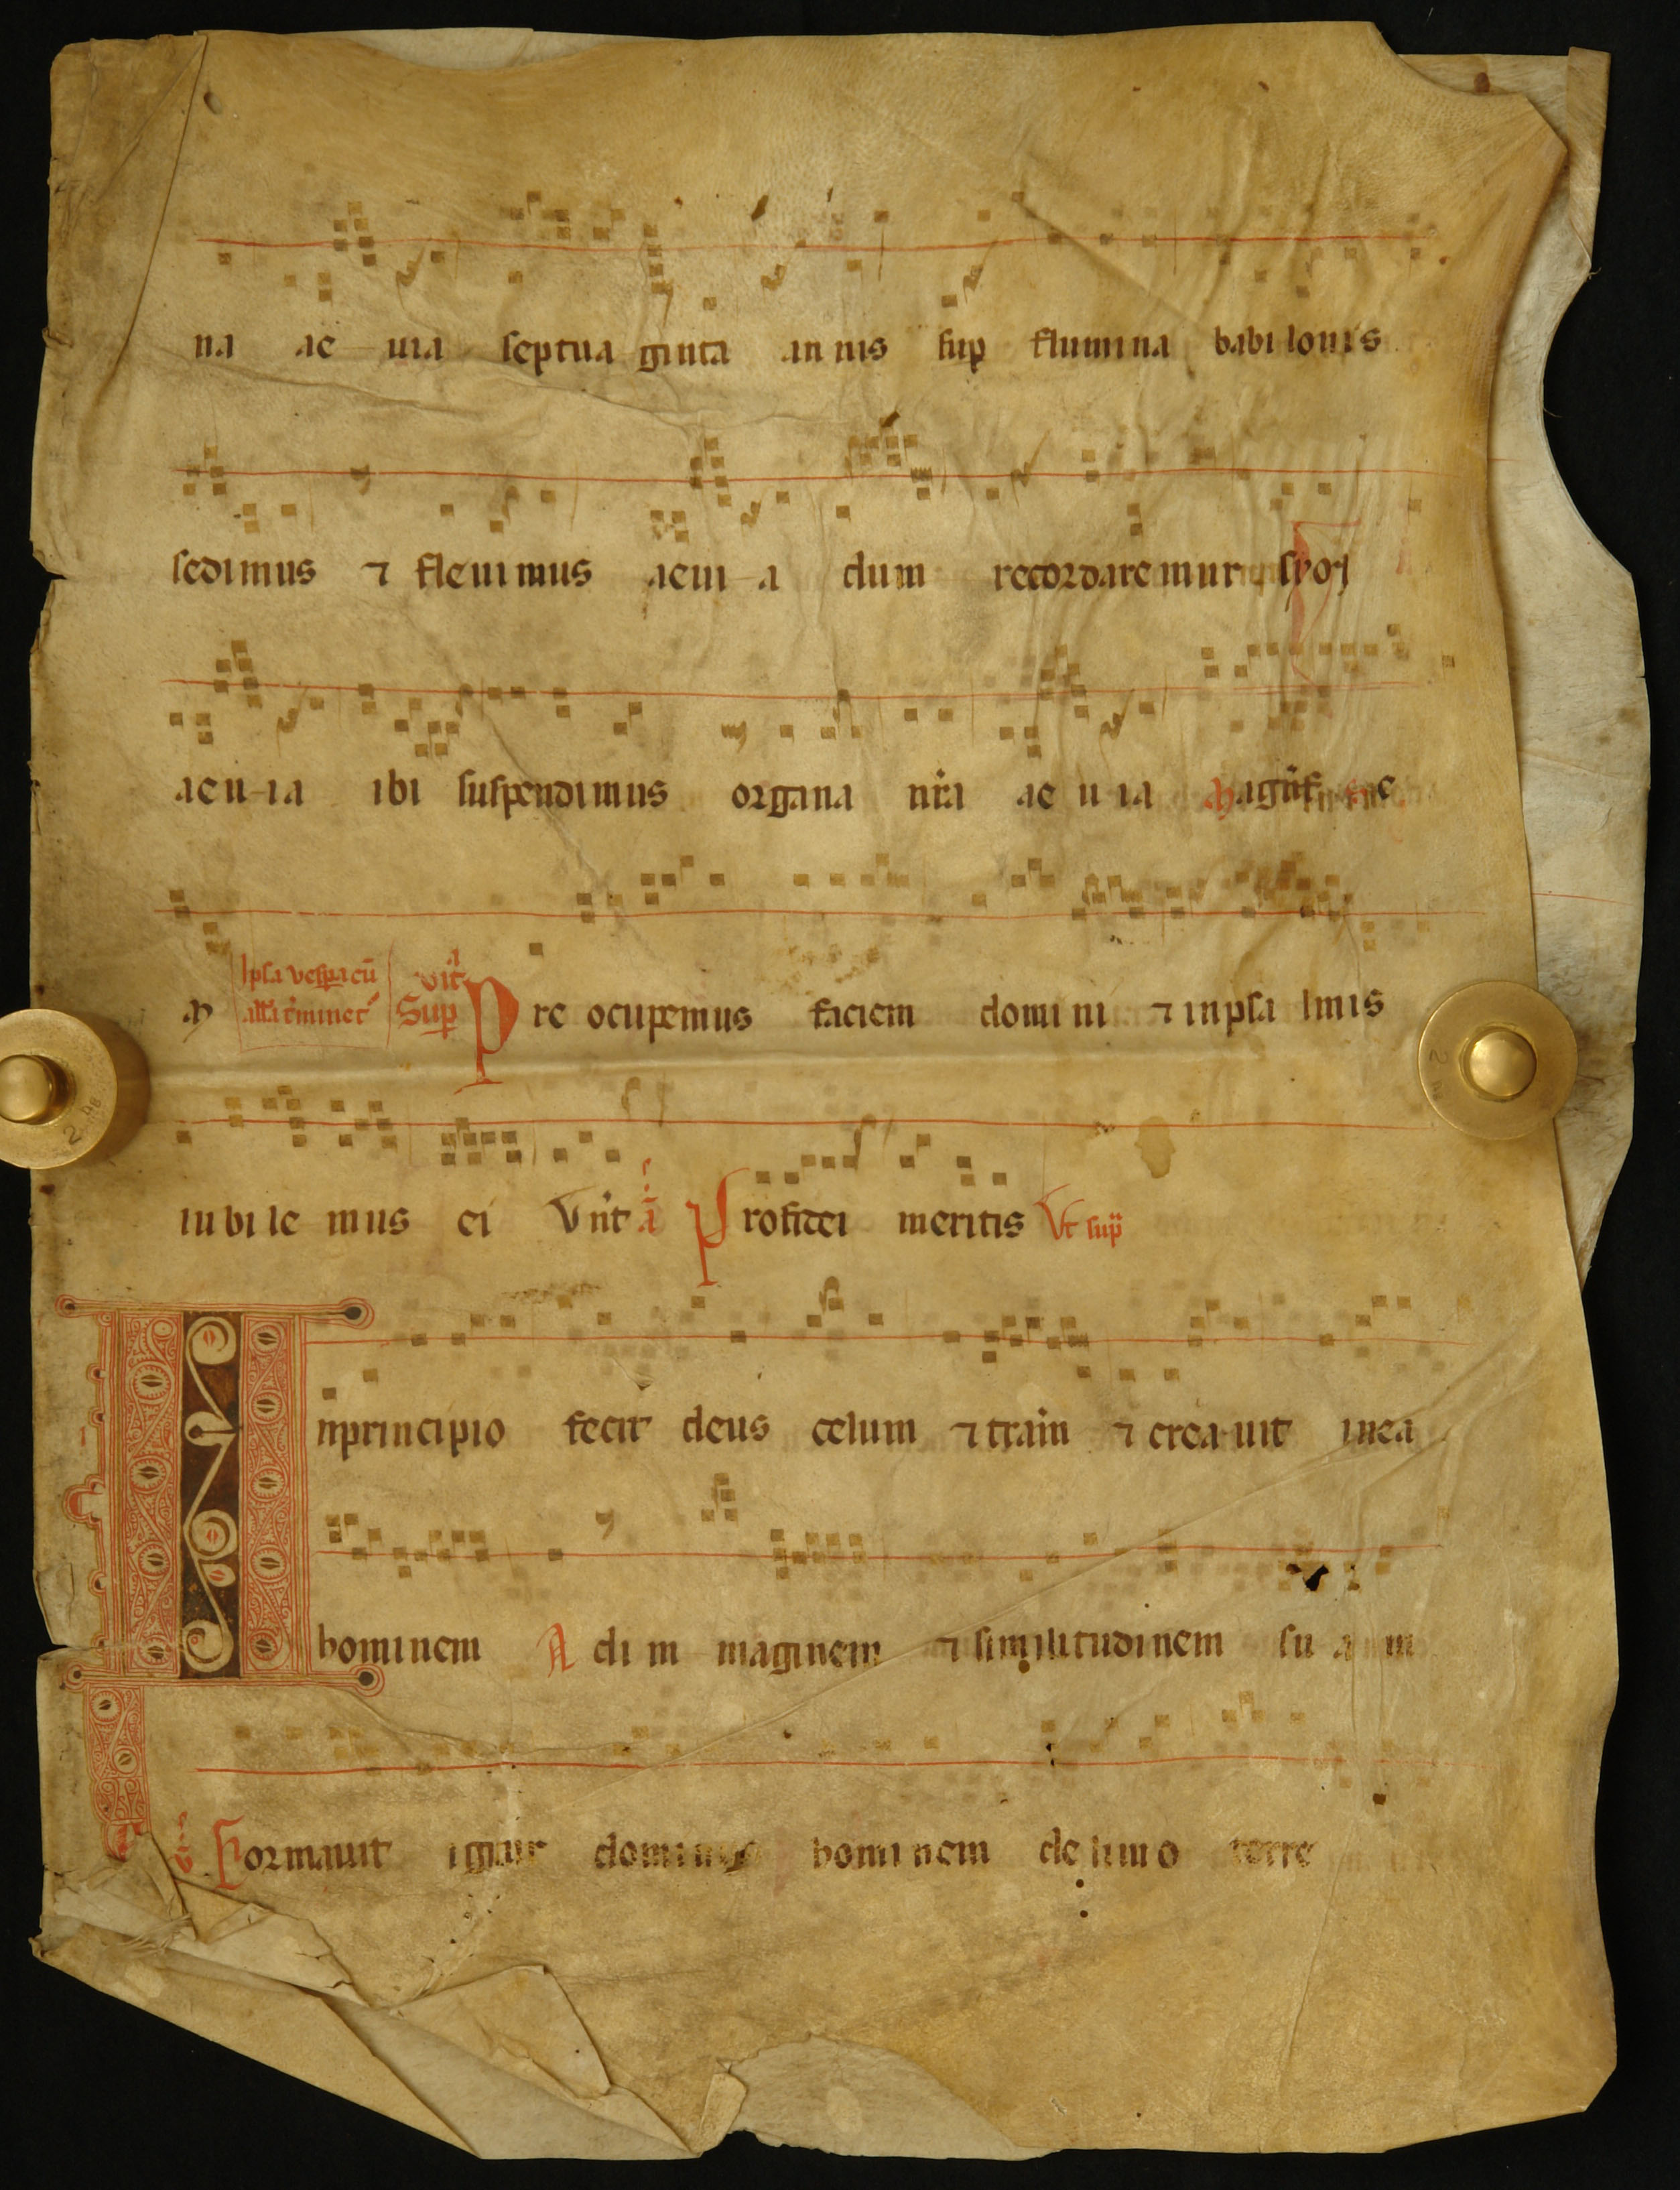 na ae uia septua ginta annis sup flumina babilonis
sedimus ⁊ fleuimus aeui a dum recordaremur syon
aeu ia ibi suspendimus organa nr̄a ae u ia Magnif
Ipsa vespa cū
allā t̄minet᷑
Sup
Pre ocupemus faciem domini ⁊ inpsalmis
iubilemus ei Vnit a Profitei meritis Vt sup̄
Inprincipio fecit deus celum ⁊ trām ⁊ creauit inea
hominem Adim maginem ⁊ similitudinem suam
Formauit igitur dominus hominem delimo terre